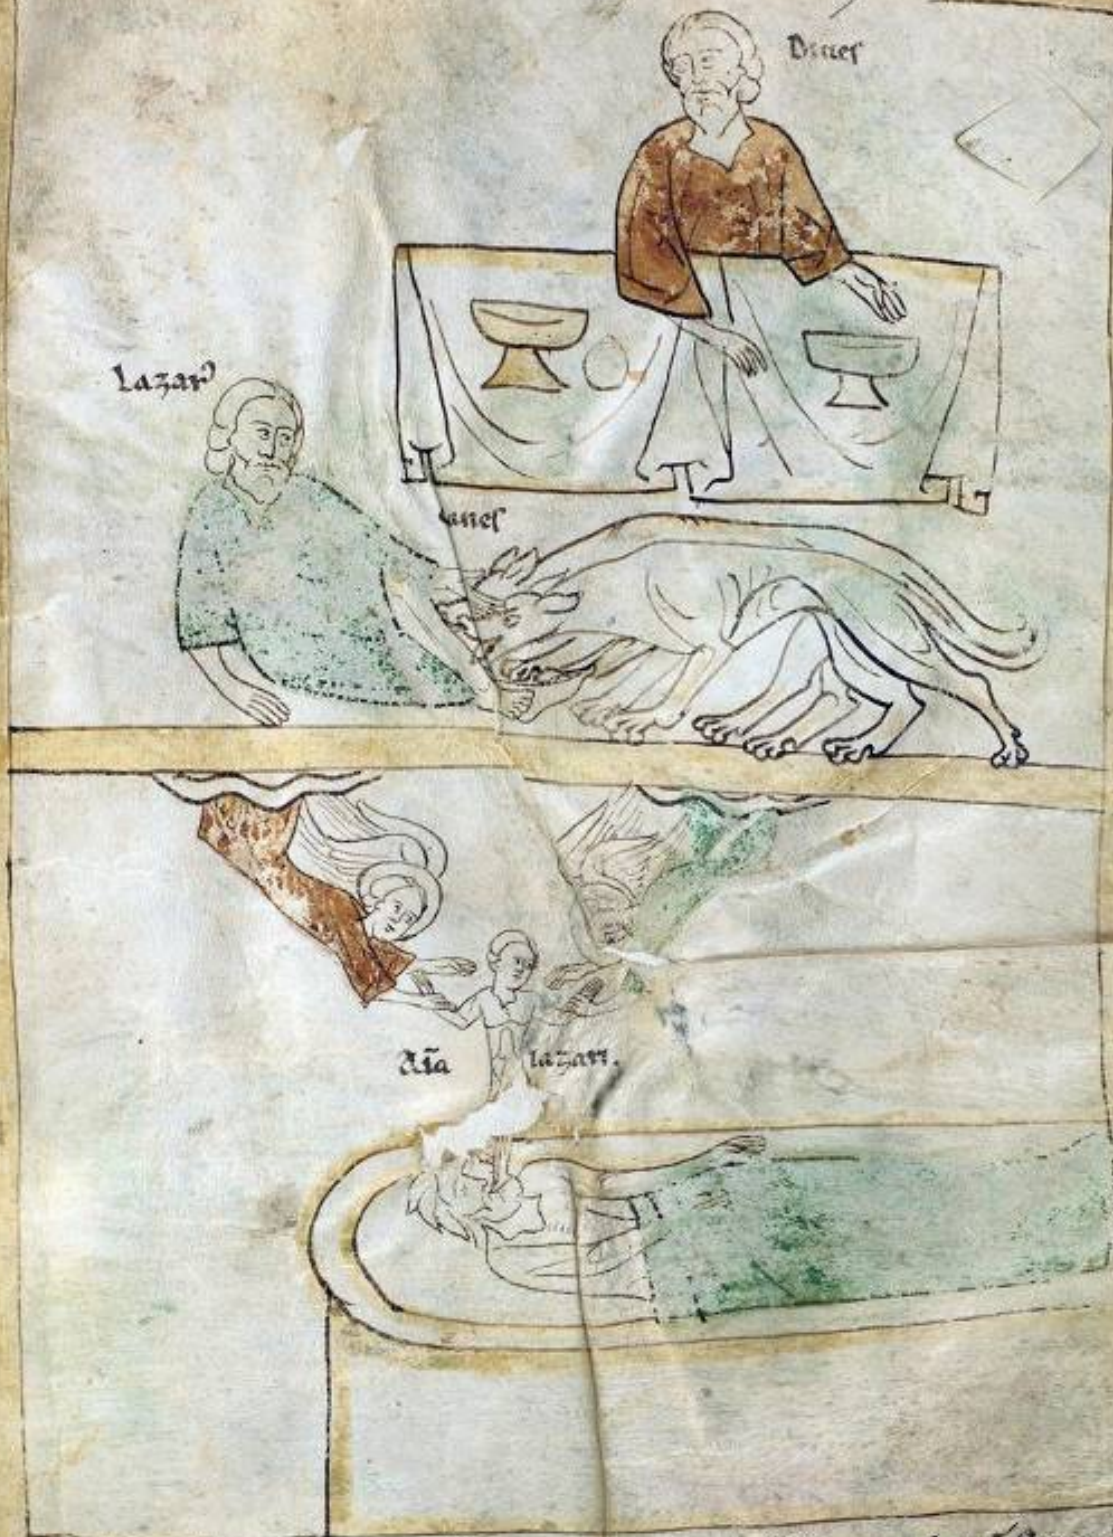 Diues
Lazar᾽
canes
Aīa lazari.